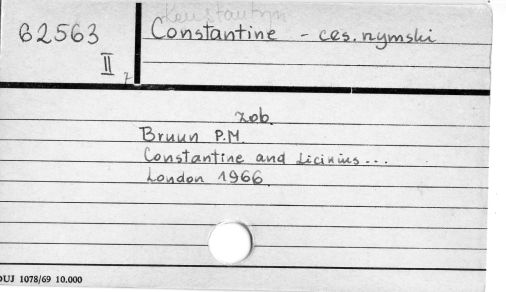 Konstantyn
62563 Constantine - ces. rzymski
II 7
zob.
Bruun P.M.
Constantine and Licinius...
London 1966
UJ 1078/69 10.000